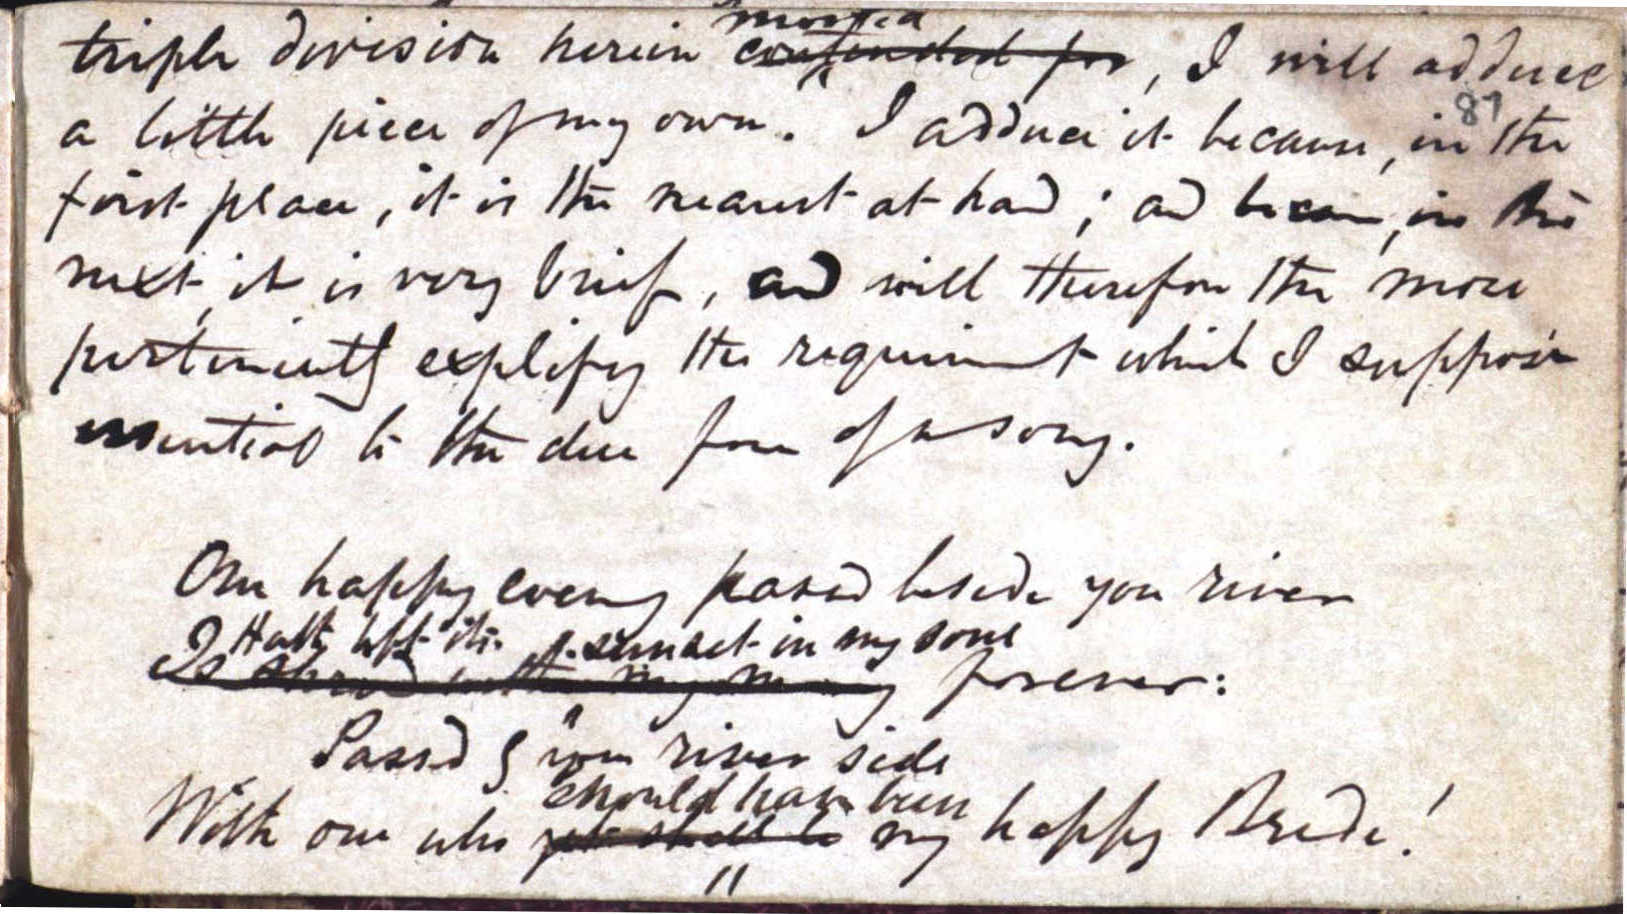 triple division herein contended for, I will adduce
87
a little piece of my own. I adduce it because, in the
first place, it is the nearest at hand; and because, in the
next, it is very brief, and will therefore the more
pertinently explify the requirement which I suppose
essential to the due form of a song.
One happy evening passed beside yon river
Hath left its sunset in my soul
Is shared with my memory forever:
Passed by yon river side
should have been
With one who yet shall be my happy Bride!